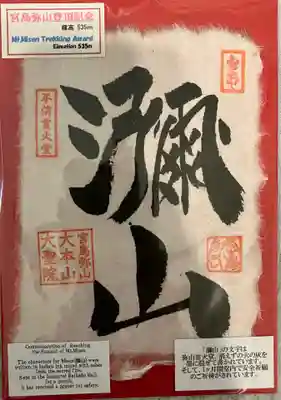 宮島弥山登頂記念
標高 535m
Mt.Misen Trekking Award
Elevation 535m
彌山
宮島弥山
大本山
大聖院
Commemoration of Reaching
the Summit of Mt.Misen
The characters for Misen(彌山) were
written in Indian ink mixed with ashes
from the sacred fire.
Kept in the Immortal Reikado Hall
for a month,
it has received a prayer for safety.
「彌山」の文字は
弥山霊火堂、消えずの火の灰を
墨に混ぜて書かれています。
そして、1ヶ月間堂内で安全祈願
のご祈祷がされています。